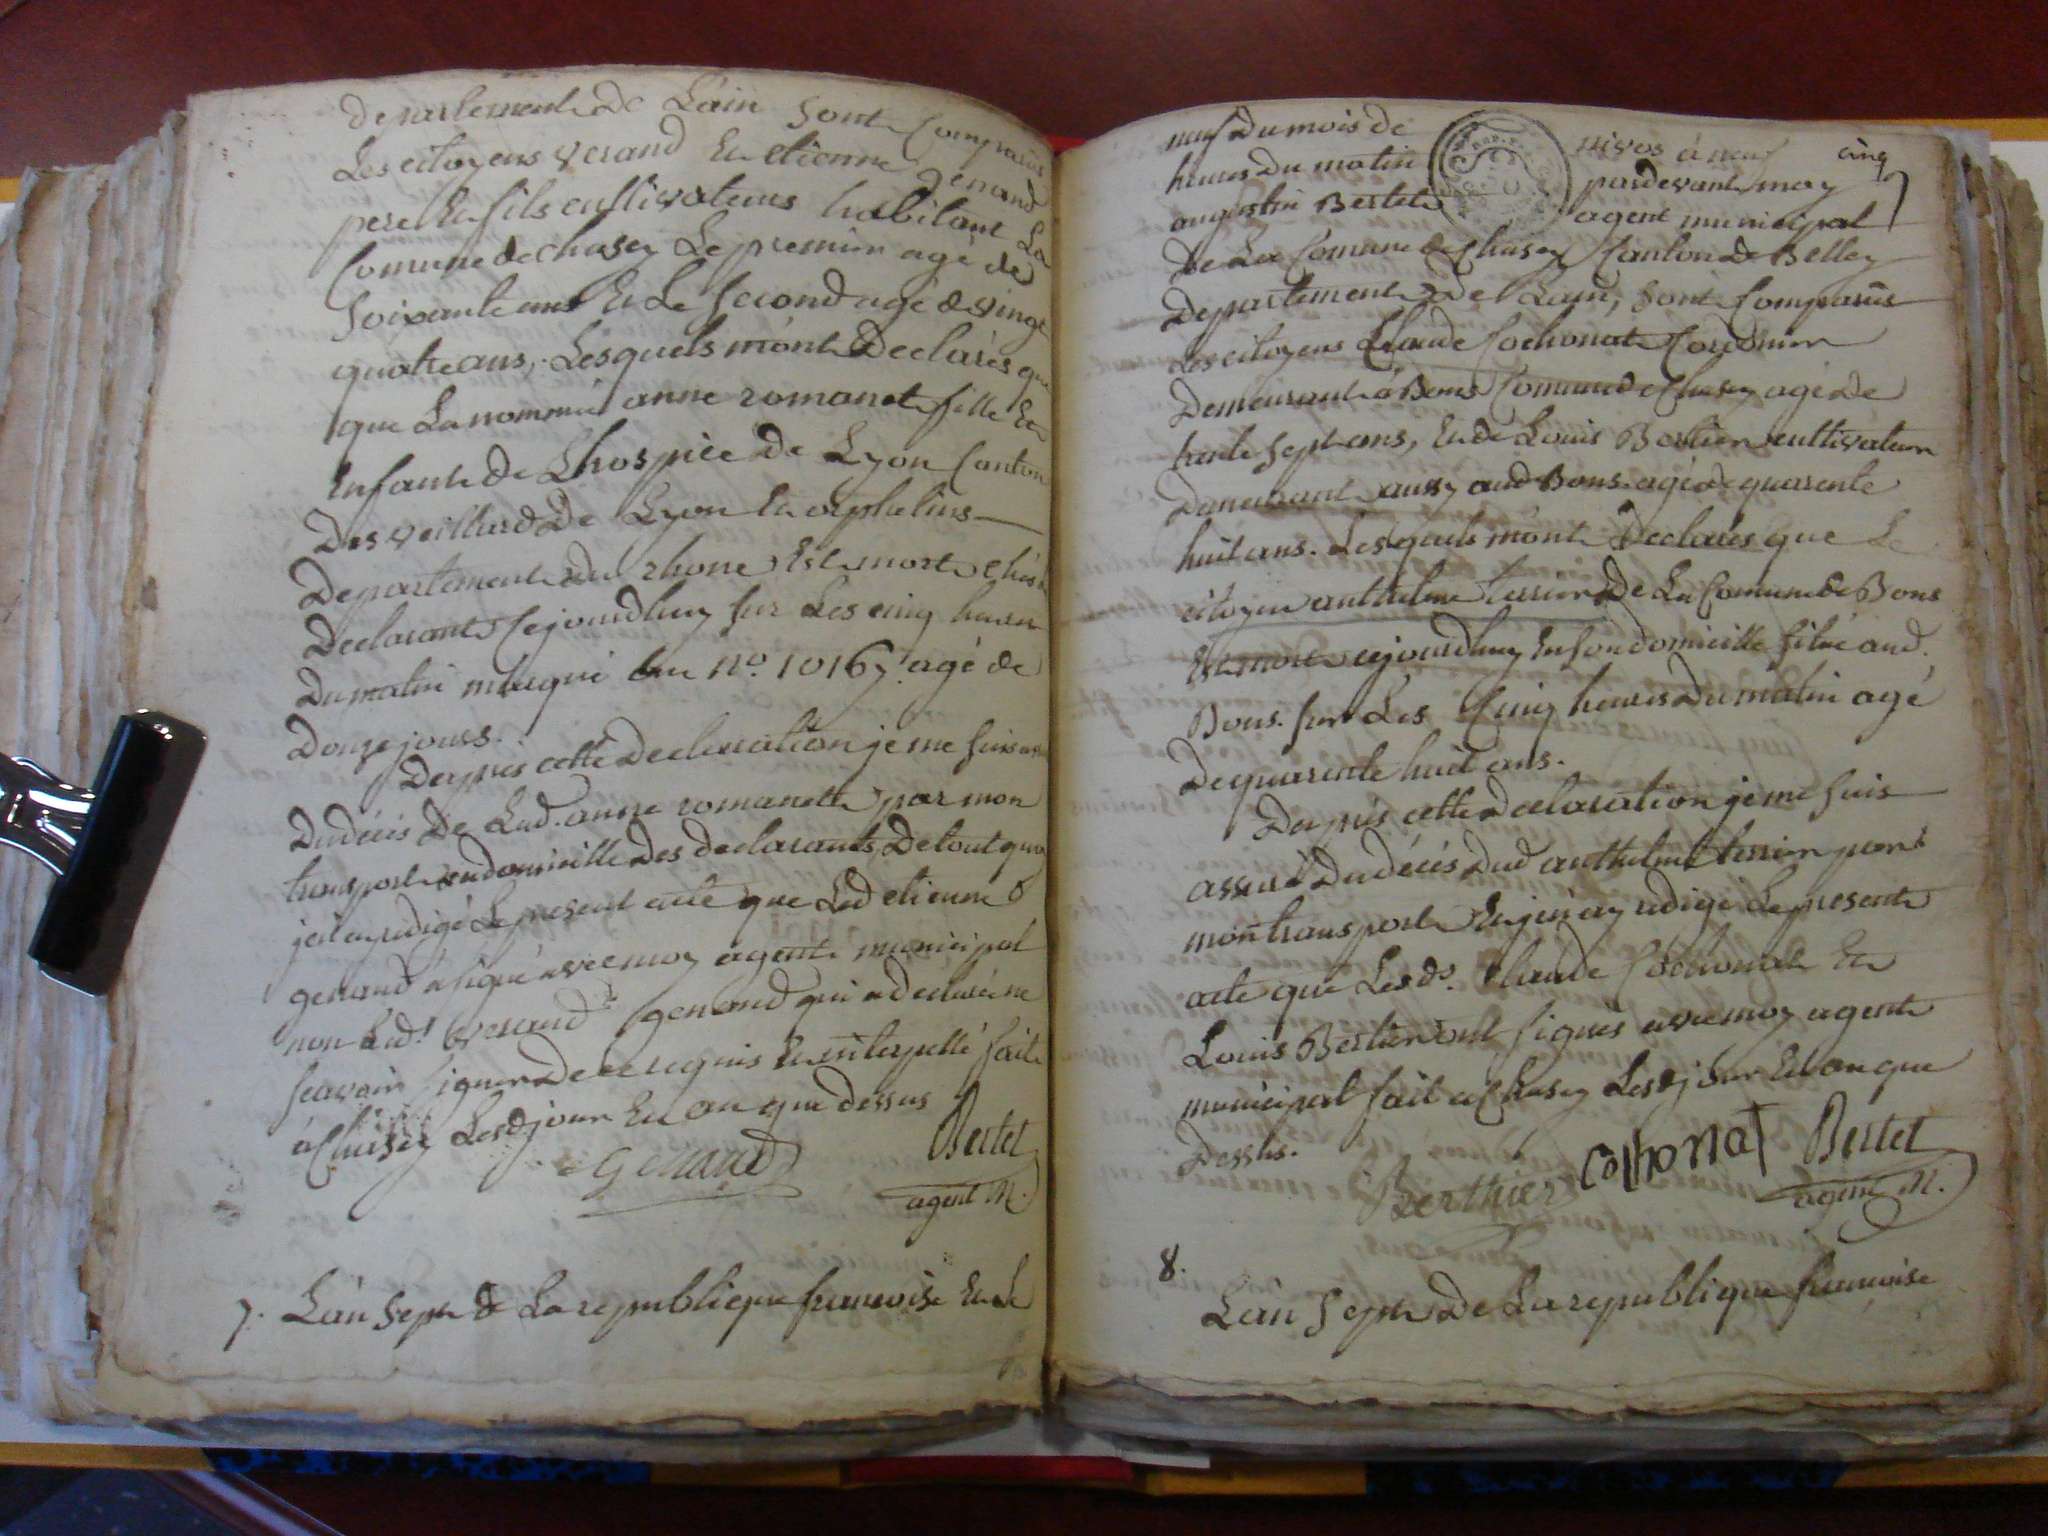 departement de Lain sont comparus
Les citoyens verand Et etienne genand
pere Et fils cultivateurs habitant La
Comune de Chasey Le premier agé de
soixante ans Et Le second agé de vingt
quatre ans, Lesquels mont Declarés que
que La nommée anne romanet fille Et
Enfant de Lhospice de Lyon Canton
Des veillard De Lyon Et orphelins
Departement du rhone Est mort chés
Declarants Cejourdhuy sur Les cinq heures
Du matin marqué au n.o 10167. agé de
Douze jours.
Daprès cette Declaration je me suis
Du décés De Lad. anne romanet par mon
transport au domicille des declarants, De tout quoy
jei ay redigé Le present acte que Led etienne
genand a signé avec moy agent municipal
non Led.t verand genand qui a declaré ne
scavoir signer de ce requis Et interpellé fait
à Chasey Lesd jour Et an que dessus
Genand
Bertet
agent M.
7. Lan sept de La republique francoise Et Le
neuf Du mois de nivos à neuf
cinq
heures Du matin pardevant moy
augustin Bertet agent municipal
De La Comune de Chasey Canton de Belley
Departement De Lain, sont Comparus
Les citoyens Claude Cochonat Cordonier
Demeurant à Bons Comune de Chasey agé de
trente sept ans, Et de Louis Bertier cultivateur
Demeurant aussy aud Bons agé de quarente
huit ans. Lesquels mont Declarés que Le
citoyen anthelme terrier De La Comune de Bons
Est mort cejourdhuy En son domicille situé aud.
Bons. sur Les Cinq heures Du matin agé
De quarente huit ans.
Daprés cette Declaration je me suis
assuré Du décés Dud anthelme terrier par
mon transport Et jen ay redigé Le present
acte que Lesd.s Claude Cochonat Et
Louis Bertier ont signés avec moy agent
municipal fait a Chasey Lesd jour Et an que
Dessus.
Berthier
cohonat
Bertet
agent M.
8.
Lan Sept De La republique francoise